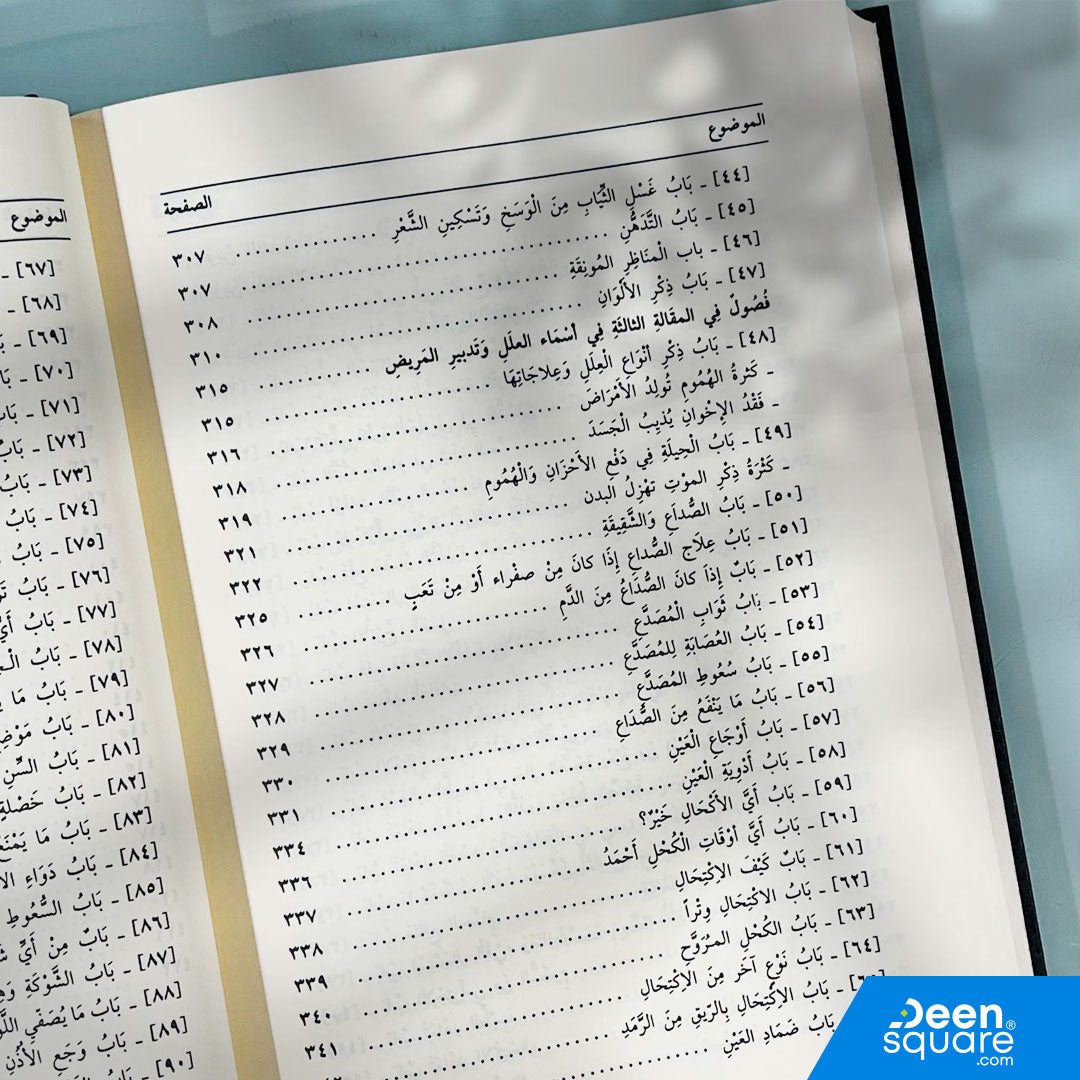 الموضوع الصفحة
[٤٤] ـ بَابُ غَسْلِ الثِّيَابِ مِنَ الْوَسَخِ وَتَسْكِينِ الشَّعْرِ ................ ٣٠٧
[٤٥] ـ بَابُ التَّدَهُّنِ ................ ٣٠٧
[٤٦] ـ باب الْمنَاظِرِ المُونِقَةِ ................ ٣٠٨
[٤٧] ـ بَابُ ذِكْرِ الأَلْوَانِ ................ ٣١٠
فُصُولٌ فِي المقَالةِ الثالثَةِ فِي أسْمَاء العلَلِ وَتَدبيرِ المَرِيضِ ................ ٣١٥
[٤٨] ـ بَابُ ذِكْرِ أَنْوَاعِ الْعِلَلِ وَعِلاجَاتِهَا ................ ٣١٥
ـ كَثرةُ الهُمُومِ تُولِدُ الأَمْرَاضَ ................ ٣١٦
ـ فَقْدُ الإِخْوانِ يُذِيبُ الْجَسَدَ ................ ٣١٨
[٤٩] ـ بَابُ الْحِيلَةِ فِي دَفْعِ الأَحْزَانِ وَالْهُمُومِ ................ ٣١٩
ـ كَثْرَةُ ذِكْرِ الموْتِ تهْزِلُ البدن ................ ٣٢١
[٥٠] ـ بَابُ الصُّدَاعِ وَالشَّقِيقَةِ ................ ٣٢٢
[٥١] ـ بَابُ عِلَاجِ الصُّداعِ إِذَا كانَ مِنْ صفْراء أَوْ مِنْ تَعَبٍ ................ ٣٢٥
[٥٢] ـ بَابٌ إِذاَ كانَ الصُّدَاعُ مِنَ الدَّمِ ................ ٣٢٦
[٥٣] ـ بَابُ ثَوَابِ الْمُصَدَّعِ ................ ٣٢٧
[٥٤] ـ بَابُ العُصَابَةِ لِلمُصَدَّعِ ................ ٣٢٨
[٥٥] ـ بَابُ سُعُوطِ المُصَدَّعِ ................ ٣٢٩
[٥٦] ـ بَابُ مَا يَنْفَعُ مِنَ الصُّدَاعِ ................ ٣٣٠
[٥٧] ـ بَابُ أَوْجَاعِ الْعَيْنِ ................ ٣٣١
[٥٨] ـ بَابُ أَدْوِيَةِ الْعَيْنِ ................ ٣٣٤
[٥٩] ـ بَابُ أَيَّ الأَكْحَالِ خَيْرٌ؟ ................ ٣٣٦
[٦٠] ـ بَابُ أَيَّ أَوْقَاتِ الْكُحْلِ أَحْمَدُ ................ ٣٣٧
[٦١] ـ بَابُ كَيْفَ الاِكْتِحَالِ ................ ٣٣٨
[٦٢] ـ بَابُ الاكْتِحَالِ وِتْراً ................ ٣٣٩
[٦٣] ـ بَابُ الكُحْلِ المـُرَوَّحِ ................ ٣٤٠
[٦٤] ـ بَابُ نَوْعٍ آخَر مِنَ الاِكْتِحَالِ ................ ٣٤١
بَابُ الاِكْتِحَالِ بِالرِّيقِ مِنَ الرَّمَدِ
بَابُ ضَمَادِ العَيْنِ
الموضوع
[٦٧] ـ
[٦٨] ـ
[٦٩] ـ
[٧٠] ـ
[٧١] ـ
[٧٢] ـ بَابُ
[٧٣] ـ بَابُ
[٧٤] ـ بَابُ
[٧٥] ـ بَابُ
[٧٦] ـ بَابُ
[٧٧] ـ بَابُ
[٧٨] ـ بَابُ
[٧٩] ـ بَابُ مَا
[٨٠] ـ بَابُ
[٨١] ـ بَابُ السِّن
[٨٢] ـ بَابُ خَصْلةٍ
[٨٣] ـ بَابُ مَا يَمْنَعُ
[٨٤] ـ بَابُ دَوَاءِ
[٨٥] ـ بَابُ السُّعُوطِ
[٨٦] ـ بَابٌ مِنْ أَيِّ
[٨٧] ـ بَابُ الشَّوْكَةِ
[٨٨] ـ بَابُ مَا يُصَفِّي
[٨٩] ـ بَابُ وَجَعِ الأُذُنِ
[٩٠] ـ بَابُ
Deen
square®
.com